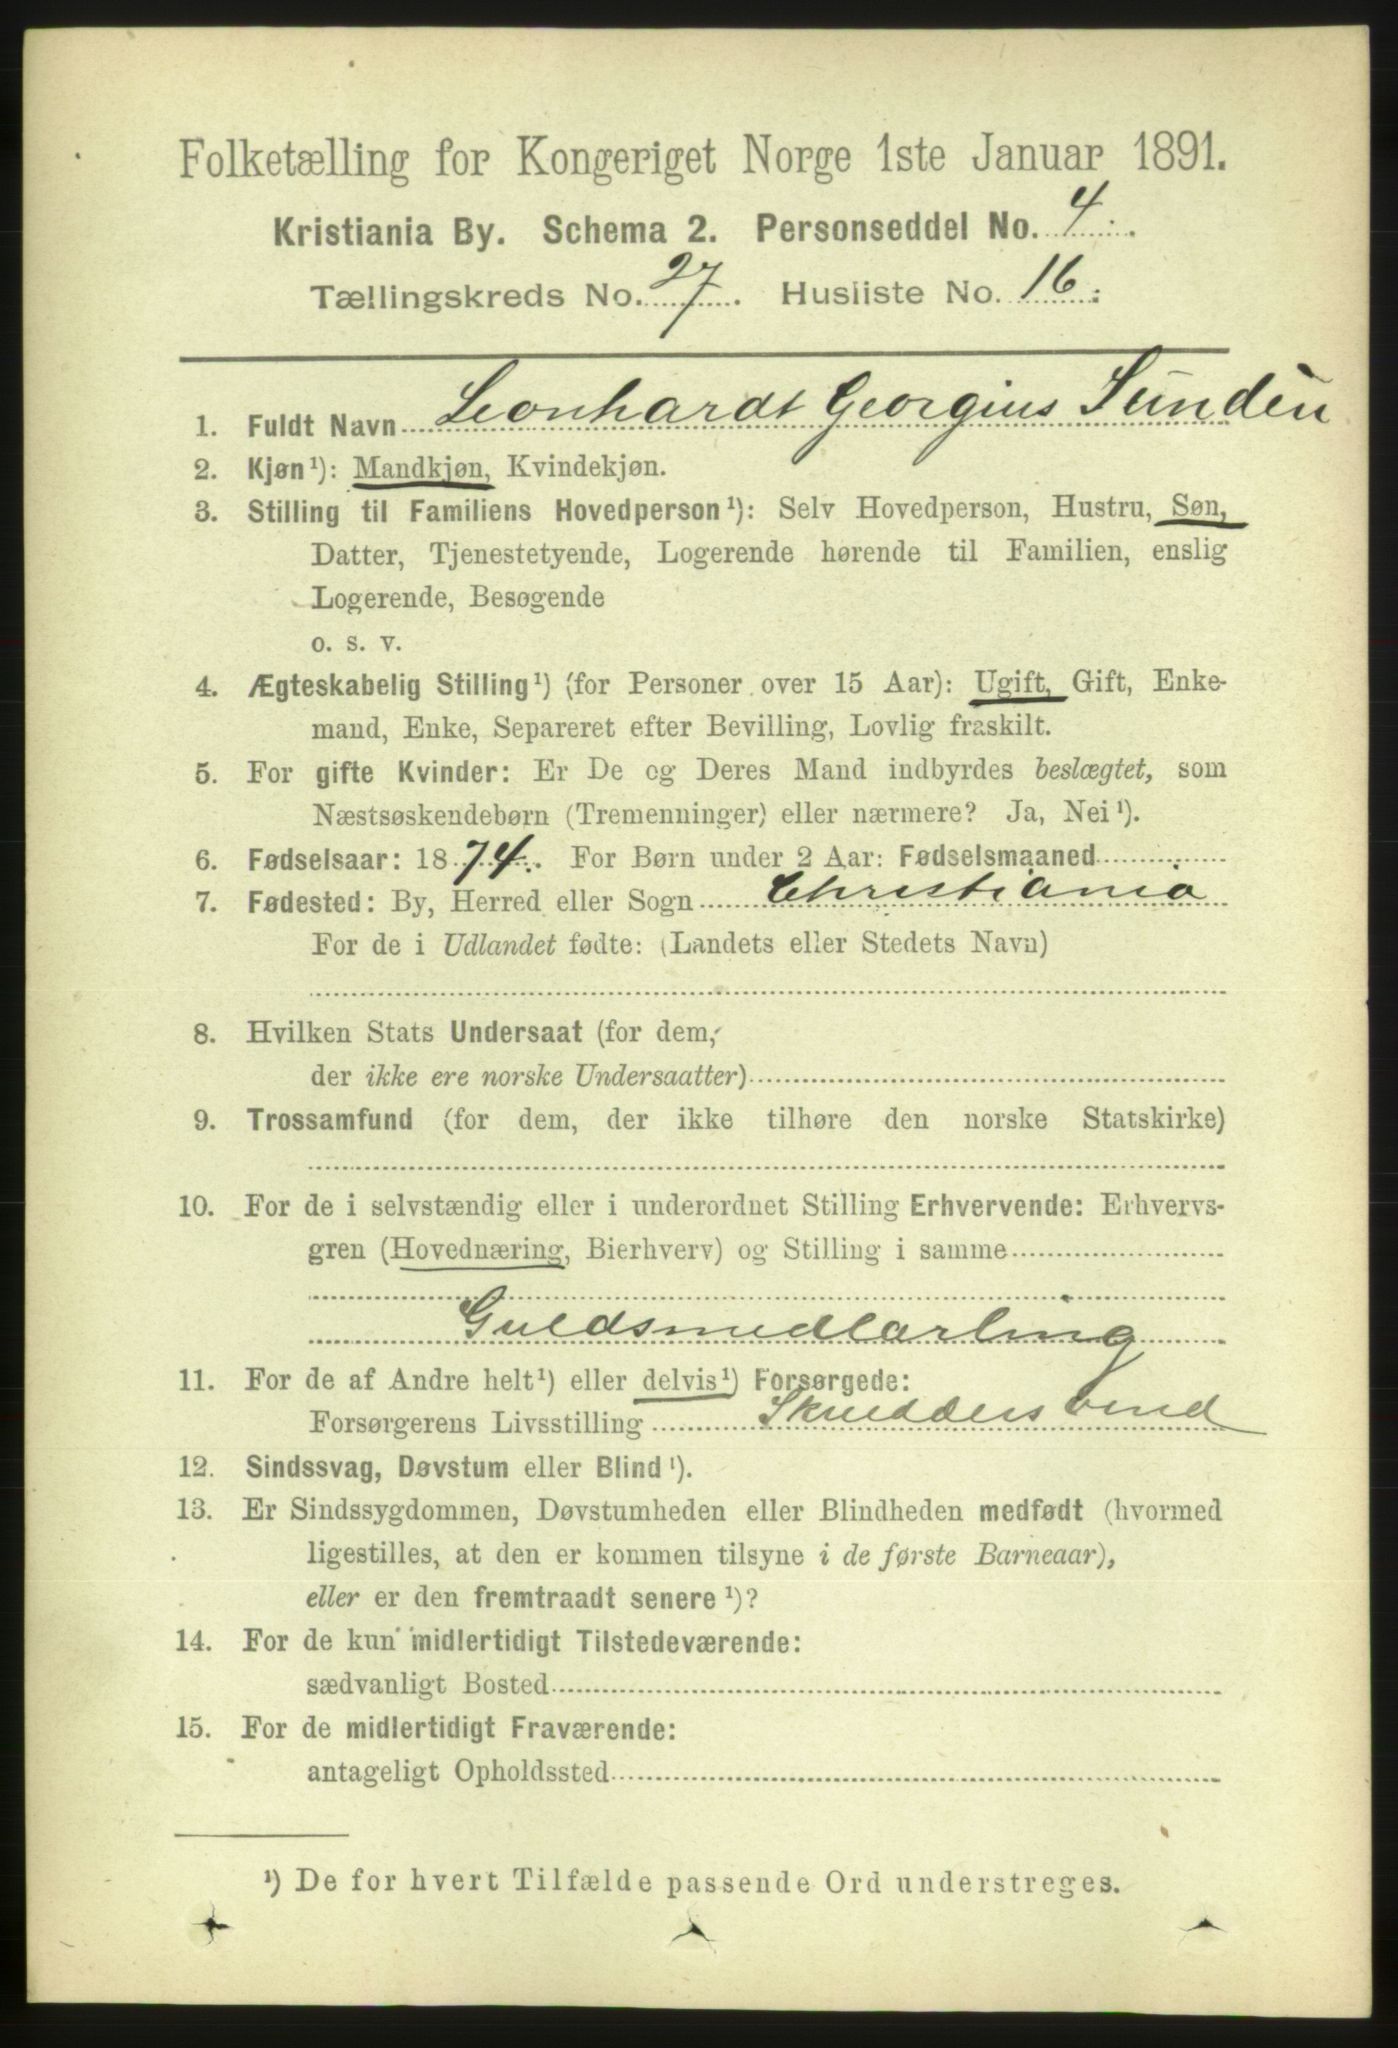 Folketælling for Kongeriget Norge 1ste Januar 1891.
Kristiania By. Schema 2. Personseddel No. 4.
Tællingskreds No. 27. Husliste No. 16.
1. Fuldt Navn Leonhardt Georgius Sundén
2. Kjøn¹): Mandkjøn, Kvindekjøn.
3. Stilling til Familiens Hovedperson¹): Selv Hovedperson, Hustru, Søn,
Datter, Tjenestetyende, Logerende hørende til Familien, enslig
Logerende, Besøgende
o. s. v.
4. Ægteskabelig Stilling¹) (for Personer over 15 Aar): Ugift, Gift, Enke-
mand, Enke, Separeret efter Bevilling, Lovlig fraskilt.
5. For gifte Kvinder: Er De og Deres Mand indbyrdes beslægtet, som
Næstsøskendebørn (Tremenninger) eller nærmere? Ja, Nei¹).
6. Fødselsaar: 1874. For Børn under 2 Aar: Fødselsmaaned
7. Fødested: By, Herred eller Sogn Christiania
For de i Udlandet fødte: (Landets eller Stedets Navn)
8. Hvilken Stats Undersaat (for dem,
der ikke ere norske Undersaatter)
9. Trossamfund (for dem, der ikke tilhøre den norske Statskirke)
10. For de i selvstændig eller i underordnet Stilling Erhvervende: Erhvervs-
gren (Hovednæring, Bierhverv) og Stilling i samme
Guldsmedlærling
11. For de af Andre helt¹) eller delvis¹) Forsørgede:
Forsørgerens Livsstilling Skreddersvend
12. Sindssvag, Døvstum eller Blind¹).
13. Er Sindssygdommen, Døvstumheden eller Blindheden medfødt (hvormed
ligestilles, at den er kommen tilsyne i de første Barneaar),
eller er den fremtraadt senere¹)?
14. For de kun midlertidigt Tilstedeværende:
sædvanligt Bosted
15. For de midlertidigt Fraværende:
antageligt Opholdssted
¹) De for hvert Tilfælde passende Ord understreges.